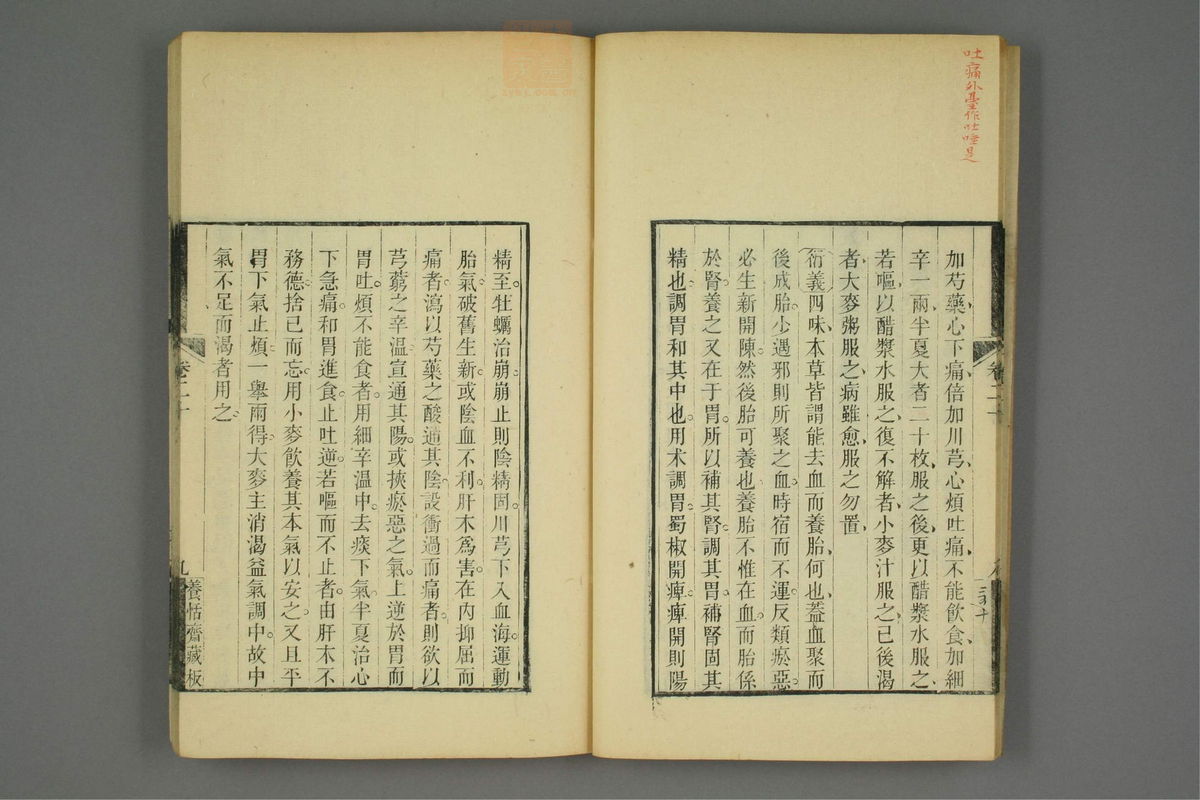 吐痛外臺作吐唾是
加芍藥心下痛倍加川芎心煩吐痛不能飲食加細
辛一兩半夏大者二十枚服之後更以醋漿水服之
若嘔以醋漿水服之復不解者小麥汁服之已後渴
者大麥粥服之病雖愈服之勿置
衍義四味本草皆謂能去血而養胎何也蓋血聚而
後成胎少遇邪則所聚之血時宿而不運反類瘀惡
必生新開陳然後胎可養也養胎不惟在血而胎係
於腎養之又在于胃所以補其腎調其胃補腎固其
精也調胃和其中也用术調胃蜀椒開痺痺開則陽
精至牡蠣治崩崩止則陰精固川芎下入血海運動
胎氣破舊生新或陰血不利肝木爲害在內抑屈而
痛者瀉以芍藥之酸通其陰設衝過而痛者則欲以
芎藭之辛温宣通其陽或挾瘀惡之氣上逆於胃而
胃吐煩不能食者用細辛温中去痰下氣半夏治心
下急痛和胃進食止吐逆若嘔而不止者由肝木不
務德捨己而忘用小麥飲養其本氣以安之又且平
胃下氣止煩一舉兩得大麥主消渴益氣調中故中
氣不足而渴者用之
卷二十
九
養恬齋藏板